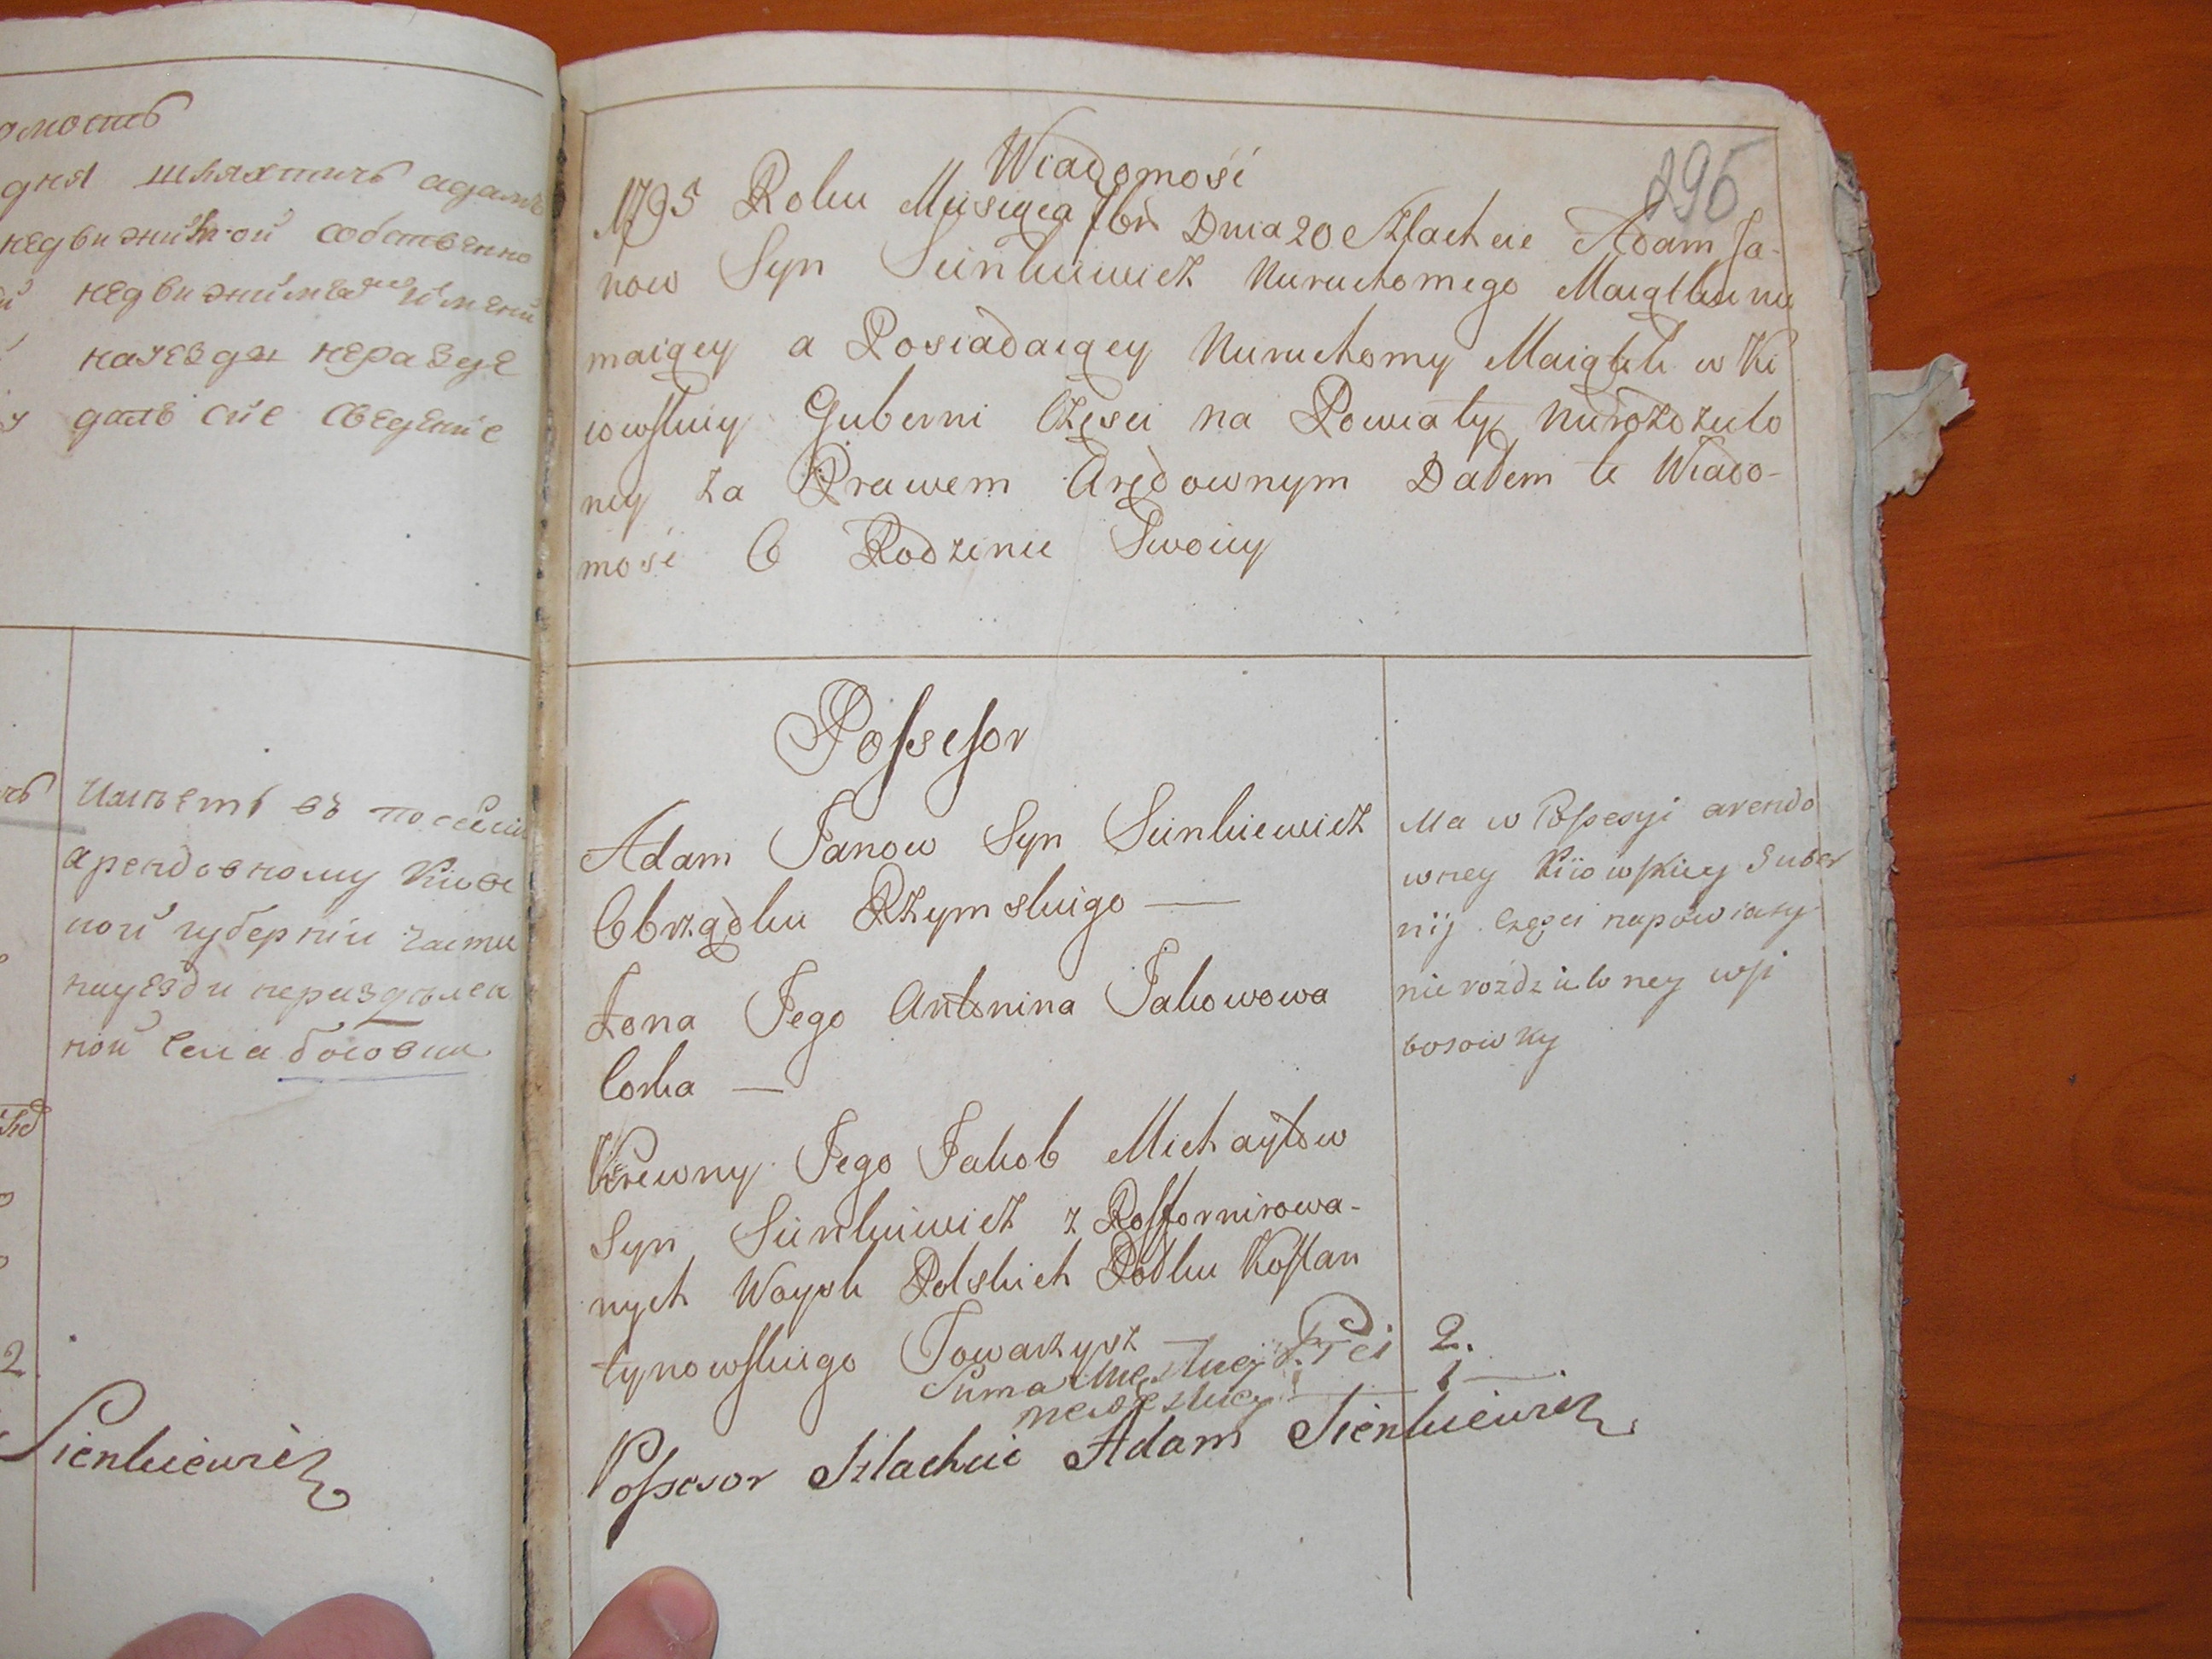 омость
дня шляхтичь адамъ
недвижимой собственно
недвижимые имени
науезди неразде
далъ сие сведение
имѣетъ въ посесии
арендовному Киев
кой губернии части
науезди нераздѣлен
ной села босовки
2
Sienkiewicz
296
Wiadomość
1795 Roku Miesiąca Dnia 20 Szlachcic Adam Ja-
now Syn Sienkiewicz Nieruchomego Maiątku nie
maiący a Posiadaiący Nieruchomy Maiątek w Ki
iowskiey Guberni Części na Powiaty Nierozdzielo
ney za Prawem Arędownym Dałem te Wiado-
mość O Rodzinie Swoiey
Possessor
Adam Janow Syn Sienkiewicz
Obrządku Rzymskiego —
Żona Jego Antonina Jakowowa
Corka —
Krewny Jego Jakob Michayłow
Syn Sienkiewicz z Rofformirowa-
nych Woysk Polskich Połku Kostan
tynowskiego Towarzysz —
Suma Męskiey Płci 2.
niewieskiey 1
Possesor Szlachcic Adam Sienkiewicz
Ma w Possesyi arendo
wney Kiiowskiey Guber
nij Części napowiaty
nierozdzieloney wsi
bosowky